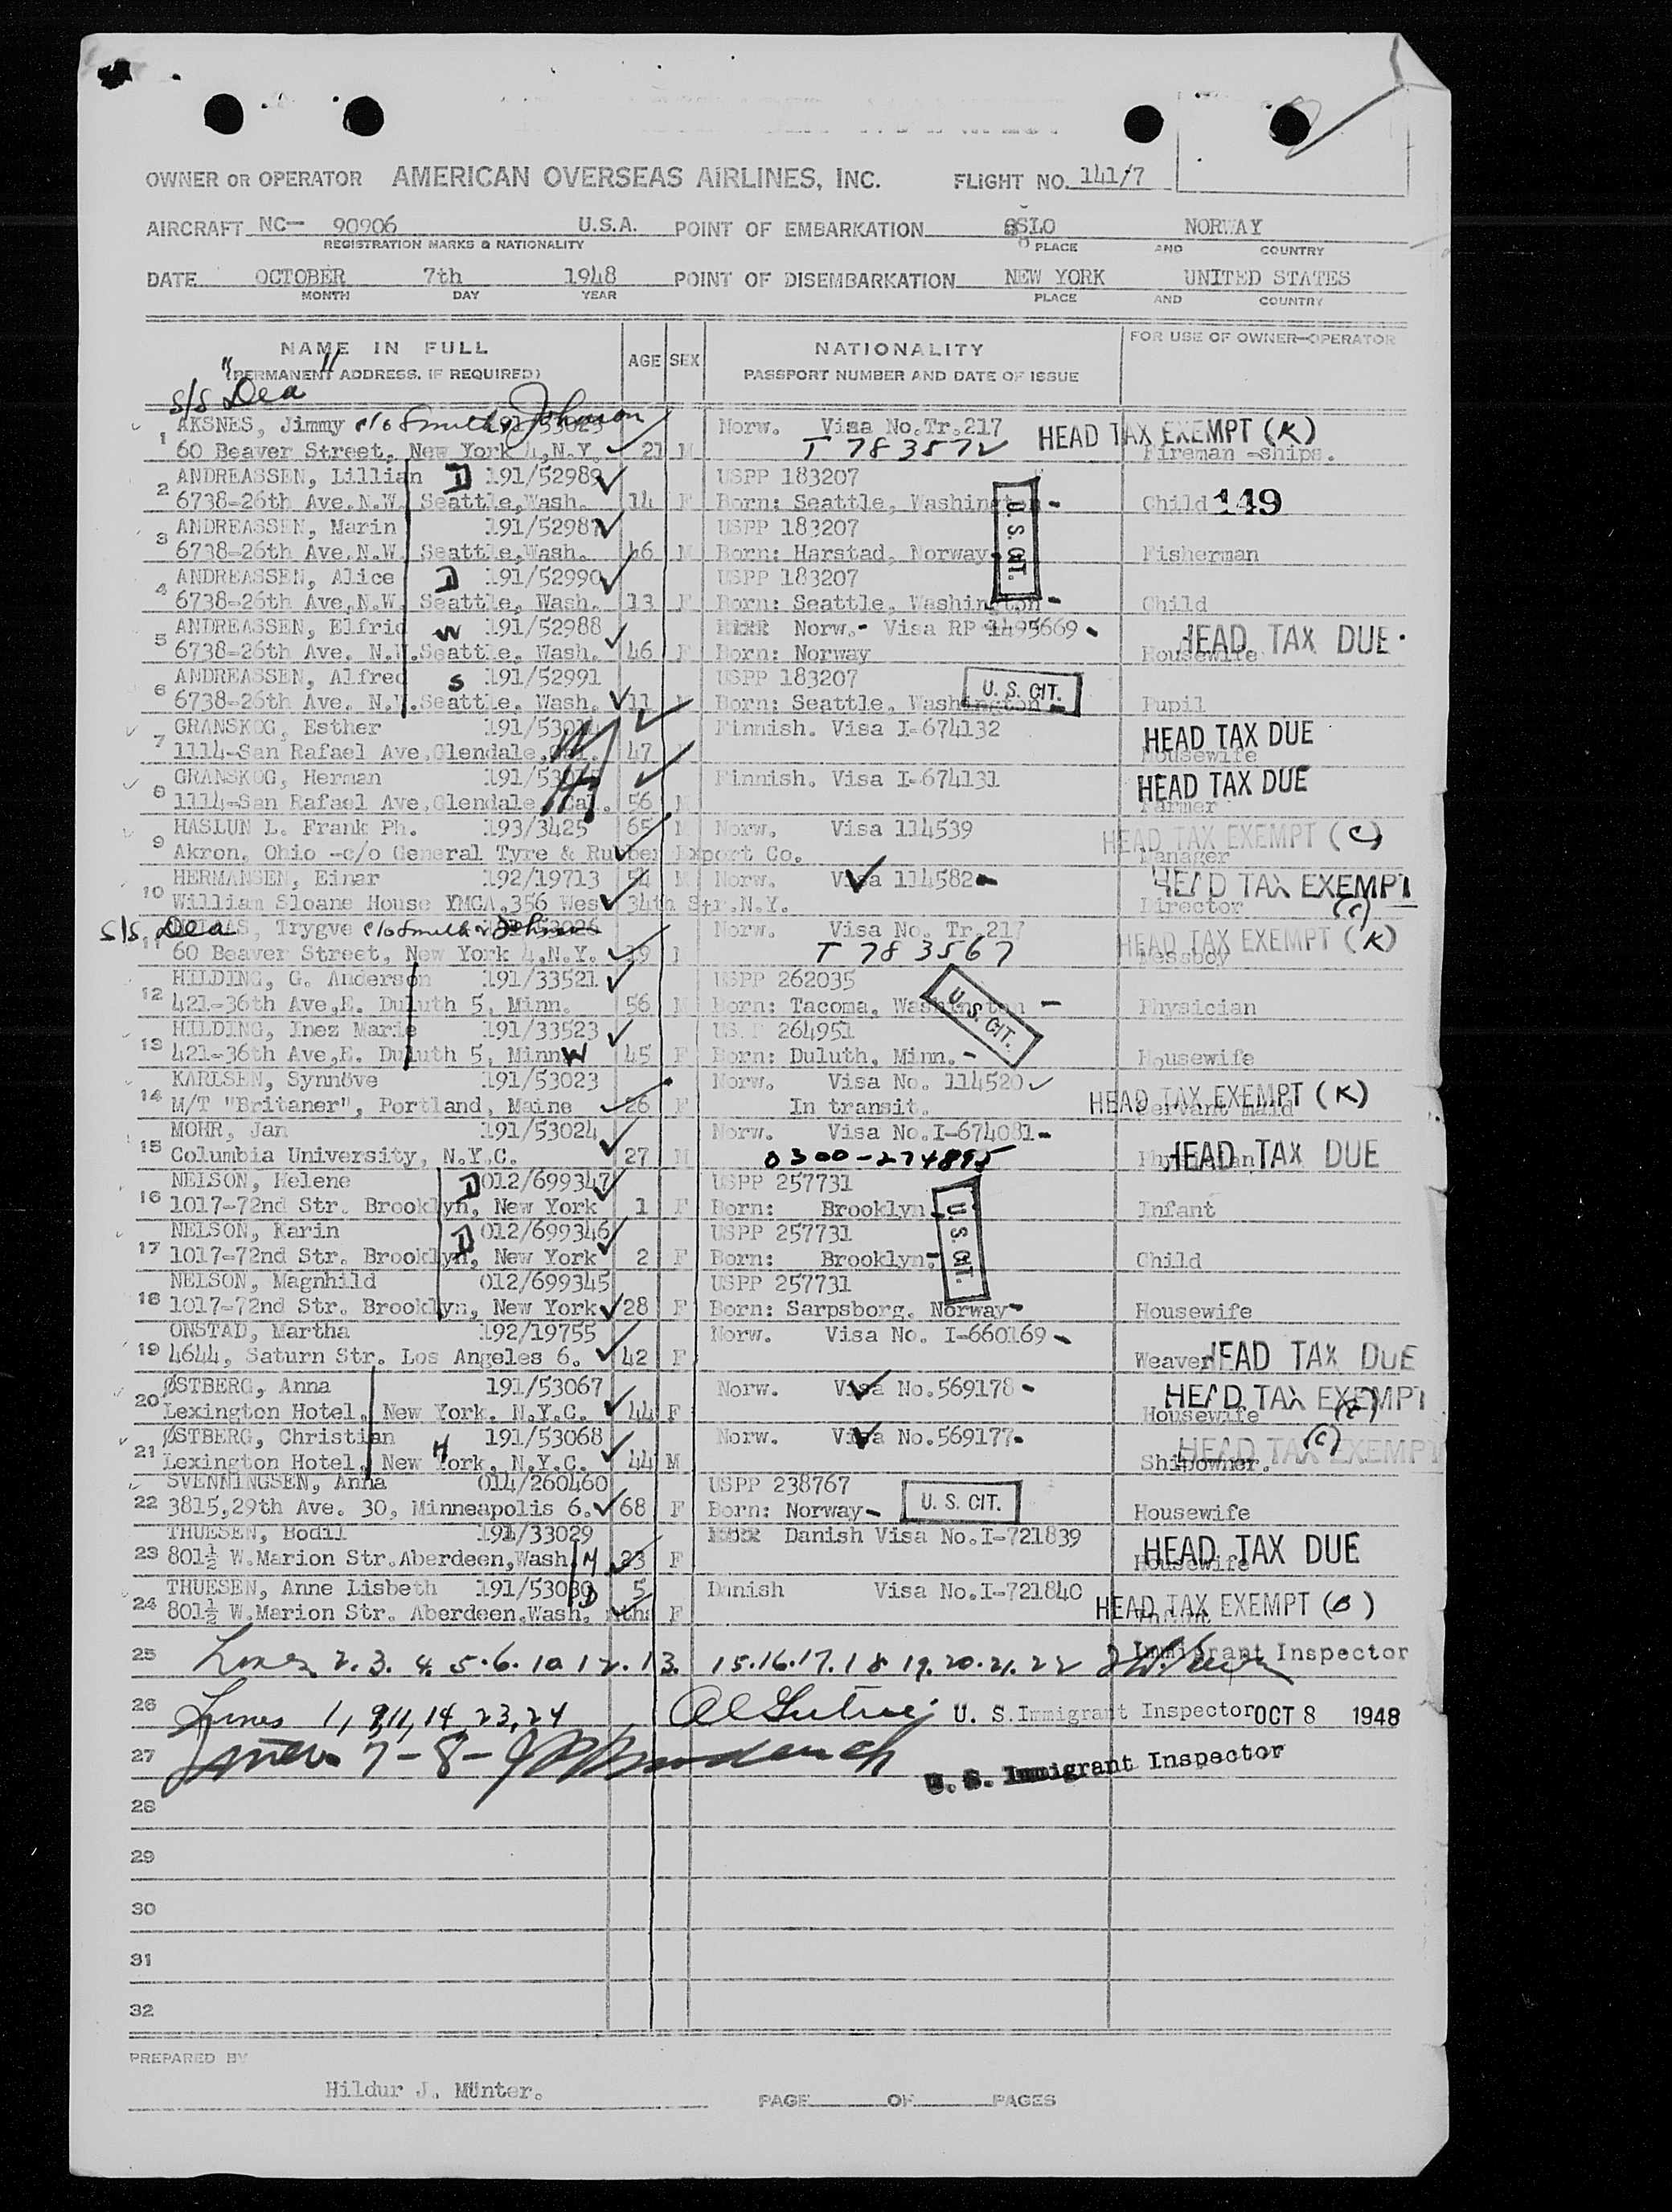 OWNER OR OPERATOR AMERICAN OVERSEAS AIRLINES, INC. FLIGHT NO. 141/7
AIRCRAFT NC— 90906 U.S.A. POINT OF EMBARKATION OSLO NORWAY
REGISTRATION MARKS & NATIONALITY PLACE AND COUNTRY
DATE OCTOBER 7th 1948 POINT OF DISEMBARKATION NEW YORK UNITED STATES
MONTH DAY YEAR PLACE AND COUNTRY
NAME IN FULL AGE SEX NATIONALITY FOR USE OF OWNER—OPERATOR
"(PERMANENT" ADDRESS, IF REQUIRED) PASSPORT NUMBER AND DATE OF ISSUE
S/S Dea
1 AKSNES, Jimmy c/o Smith & Johnson 191/53025 Norw. Visa No.Tr.217 HEAD TAX EXEMPT (K)
60 Beaver Street, New York 4,N.Y. 21 M T 783572 Fireman -ships.
2 ANDREASSEN, Lillian D 191/52989 USPP 183207
6738-26th Ave.N.W. Seattle,Wash. 14 F Born: Seattle, Washington - U.S. CIT. Child 149
3 ANDREASSEN, Marin 191/52987 USPP 183207
6738-26th Ave.N.W. Seattle,Wash. 46 M Born: Harstad, Norway Fisherman
4 ANDREASSEN, Alice D 191/52990 USPP 183207
6738-26th Ave,N.W. Seattle, Wash. 13 F Born: Seattle, Washington - Child
5 ANDREASSEN, Elfrid W 191/52988 Norw.- Visa RP 1495669 HEAD TAX DUE
6738-26th Ave. N.W.Seattle, Wash. 46 F Born: Norway Housewife
6 ANDREASSEN, Alfred S 191/52991 USPP 183207 U. S. CIT.
6738-26th Ave. N.W.Seattle, Wash. 11 M Born: Seattle, Washington Pupil
7 GRANSKOG, Esther Finnish. Visa I-674132 HEAD TAX DUE
1114-San Rafael Ave,Glendale, 47 Housewife
8 GRANSKOG, Herman Finnish. Visa I-674131 HEAD TAX DUE
1114-San Rafael Ave,Glendale, Cal. 56 M Farmer
9 HASLUN L. Frank Ph. 193/3425 65 M Norw. Visa 114539 HEAD TAX EXEMPT (C)
Akron, Ohio -c/o General Tyre & Rubber Export Co. Manager
10 HERMANSEN, Einar 192/19713 54 M Norw. Visa 114582 HEAD TAX EXEMPT
William Sloane House YMCA,356 West 34th Str.N.Y. Director (C)
S/S Dea
11 Trygve c/o Smith & Johnson Norw. Visa No. Tr.217 HEAD TAX EXEMPT (K)
60 Beaver Street, New York 4,N.Y. 19 T 783567 Messboy
12 HILDING, G. Anderson 191/33521 USPP 262035
421-36th Ave,E. Duluth 5, Minn. 56 M Born: Tacoma, Washington - U. S. CIT. Physician
13 HILDING, Inez Marie 191/33523 264951
421-36th Ave,E. Duluth 5, Minn W 45 F Born: Duluth, Minn. - Housewife
14 KARLSEN, Synnöve 191/53023 Norw. Visa No. 114520 HEAD TAX EXEMPT (K)
M/T "Britaner", Portland, Maine 26 F In transit. Servant maid
15 MOHR, Jan 191/53024 Norw. Visa No.I-674081 HEAD TAX DUE
Columbia University, N.Y.C. 27 M 0300-274895
16 NELSON, Helene D 012/699347 USPP 257731
1017-72nd Str. Brooklyn, New York 1 F Born: Brooklyn U. S. CIT. Infant
17 NELSON, Karin D 012/699346 USPP 257731
1017-72nd Str. Brooklyn, New York 2 F Born: Brooklyn. Child
18 NELSON, Magnhild 012/699345 USPP 257731
1017-72nd Str. Brooklyn, New York 28 F Born: Sarpsborg, Norway Housewife
19 ONSTAD, Martha 192/19755 Norw. Visa No. I-660169
4644, Saturn Str. Los Angeles 6. 42 F Weaver HEAD TAX DUE
20 ØSTBERG, Anna 191/53067 Norw. Visa No.569178 HEAD TAX EXEMPT
Lexington Hotel, New York. N.Y.C. 44 F Housewife (C)
21 ØSTBERG, Christian 191/53068 Norw. Visa No.569177 HEAD TAX EXEMPT (C)
Lexington Hotel, New York, N.Y.C. H 44 M Shipowner.
22 SVENNINGSEN, Anna 014/260460 USPP 238767
3815,29th Ave. 30, Minneapolis 6. 68 F Born: Norway - U. S. CIT. Housewife
23 THUESEN, Bodil 191/33029 Danish Visa No.I-721839 HEAD TAX DUE
801½ W.Marion Str.Aberdeen,Wash. M 23 F Housewife
24 THUESEN, Anne Lisbeth 191/53030 D 5 Danish Visa No.I-721840 HEAD TAX EXEMPT (B)
801½ W.Marion Str. Aberdeen,Wash. mths F Infant
25 Lines 2. 3. 4. 5. 6. 10 12. 13. 15. 16. 17. 18 19. 20. 21. 22 Immigrant Inspector
26 Lines 1, 9, 11, 14 23, 24 U. S. Immigrant Inspector OCT 8 1948
27 Lines 7 - 8 - U. S. Immigrant Inspector
28
29
30
31
32
PREPARED BY
Hildur J. Münter.
PAGE OF PAGES